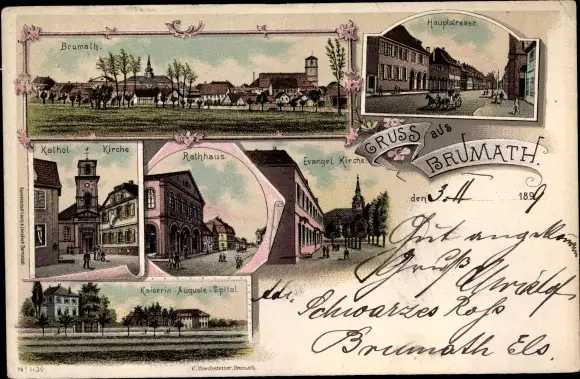 Brumath.
Hauptstrasse
GRUSS aus
BRUMATH.
Kathol. Kirche
Rathhaus
Evangel. Kirche
den 3. 11 1899
Gut angekommen
Gruß
Adr. Schwarzes Roß
Brumath Els.
Kaiserin-Auguste-Spital.
No 1130